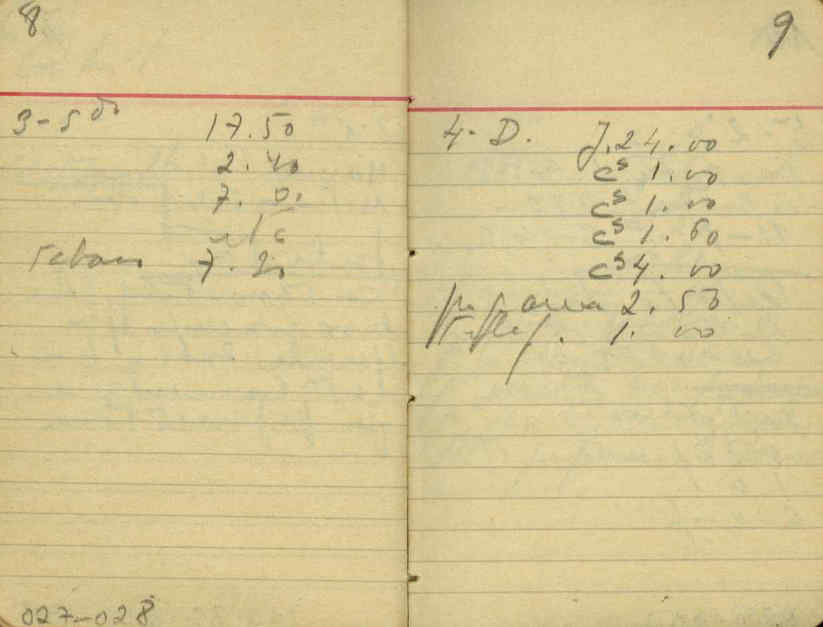 8
3-5 do
17.50
2.40
7.
7.20
027-028
9
4-D. J.24.00
cs 1.00
cs 1.00
cs 1.60
cs 4.00
2.50
1.00